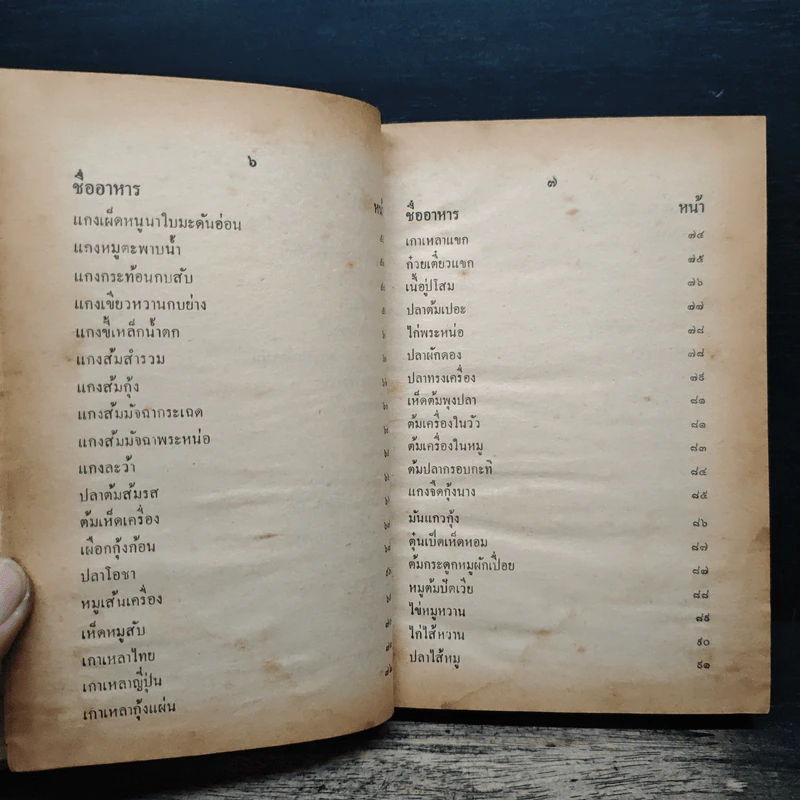 ๖
ชื่ออาหาร
แกงเผ็ดหนูนาใบมะดันอ่อน
แกงหมูตะพาบน้ำ
แกงกระท้อนกบสับ
แกงเขียวหวานกบย่าง
แกงขี้เหล็กน้ำตก
แกงส้มสำรวม
แกงส้มกุ้ง
แกงส้มมัจฉากระเฉด
แกงส้มมัจฉาพระหน่อ
แกงละว้า
ปลาต้มส้มรส
ต้มเห็ดเครื่อง
เผือกกุ้งก้อน
ปลาโอชา
หมูเส้นเครื่อง
เห็ดหมูสับ
เกาเหลาไทย
เกาเหลาญี่ปุ่น
เกาเหลากุ้งแผ่น
๗
ชื่ออาหาร หน้า
เกาเหลาแขก ๗๔
ก๋วยเตี๋ยวแขก ๗๕
เนื้อปู่โสม ๗๖
ปลาต้มเปอะ ๗๗
ไก่พระหน่อ ๗๘
ปลาผักดอง ๗๘
ปลาทรงเครื่อง ๗๙
เห็ดต้มพุงปลา ๘๑
ต้มเครื่องในวัว ๘๑
ต้มเครื่องในหมู ๘๓
ต้มปลากรอบกะทิ ๘๔
แกงจืดกุ้งนาง ๘๕
มันแกวกุ้ง ๘๖
ตุ๋นเป็ดเห็ดหอม ๘๗
ต้มกระดูกหมูผักเปื่อย ๘๗
หมูต้มปัตเวีย ๘๘
ไข่หมูหวาน ๘๙
ไก่ไส้หวาน ๙๐
ปลาไส้หมู ๙๑